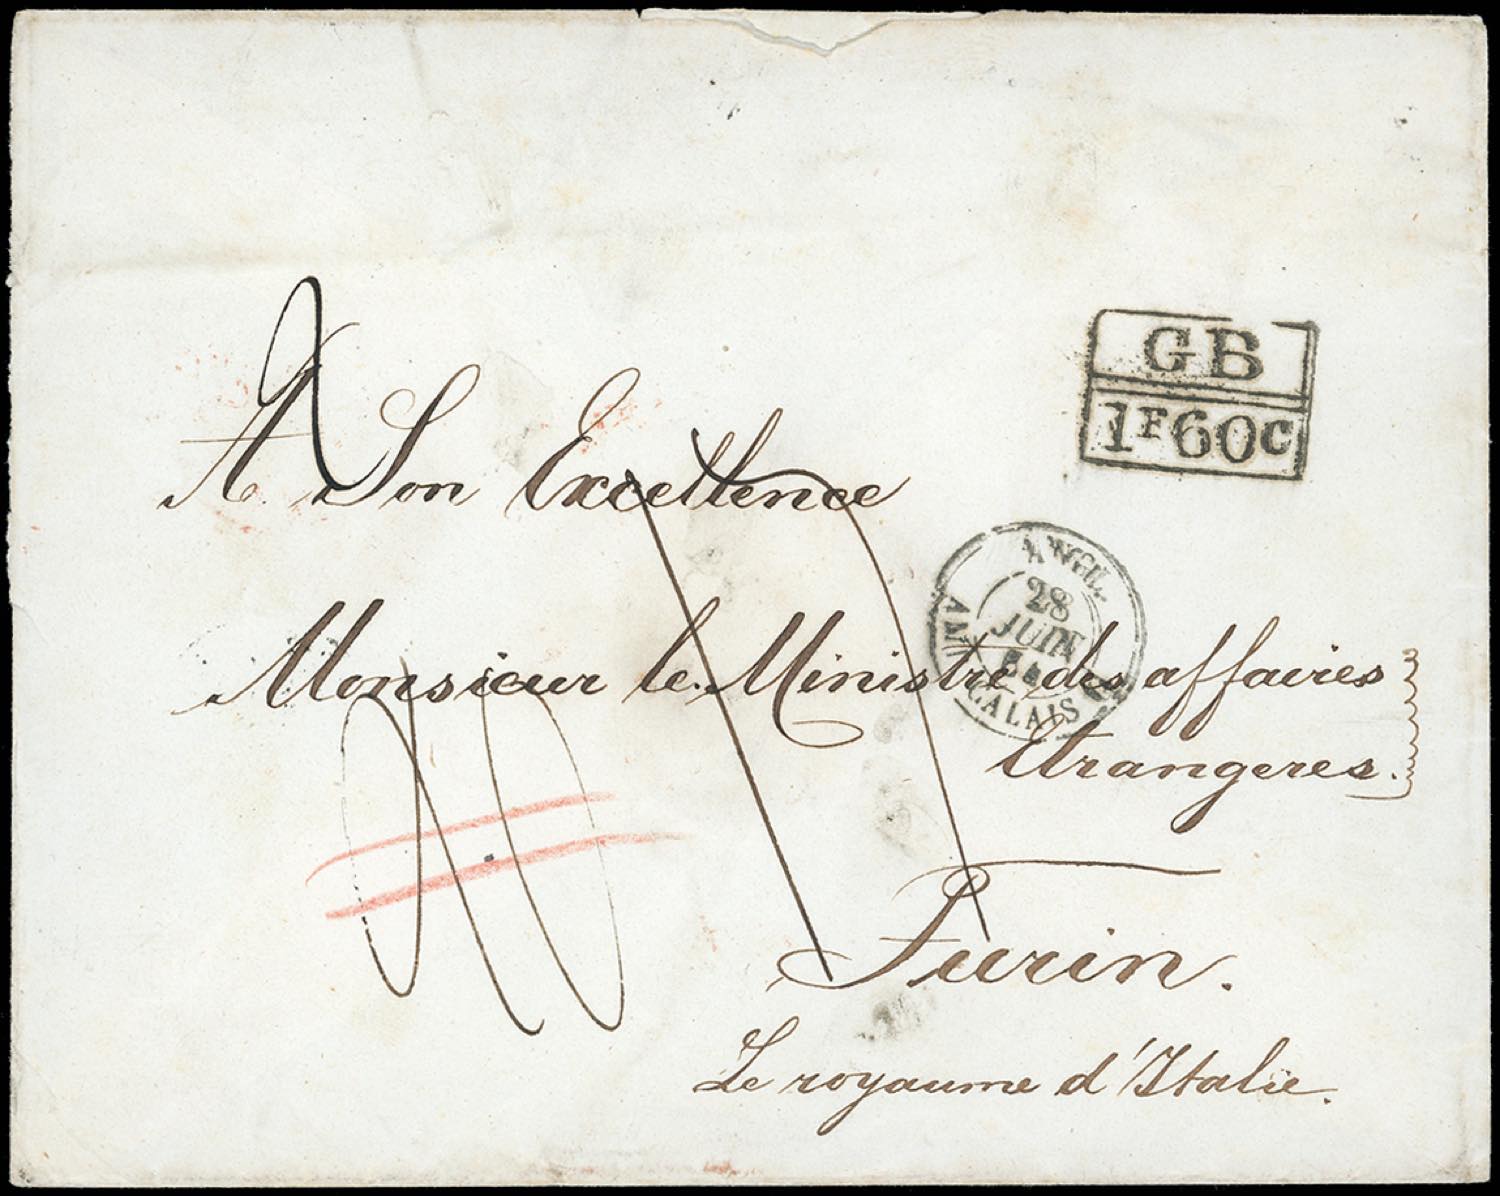 GB
1F60C
A Son Excellence
ANGL.
28
JUIN
CALAIS
Monsieur le Ministre des affaires
Etrangeres.
Turin.
Le royaume d'Italie.